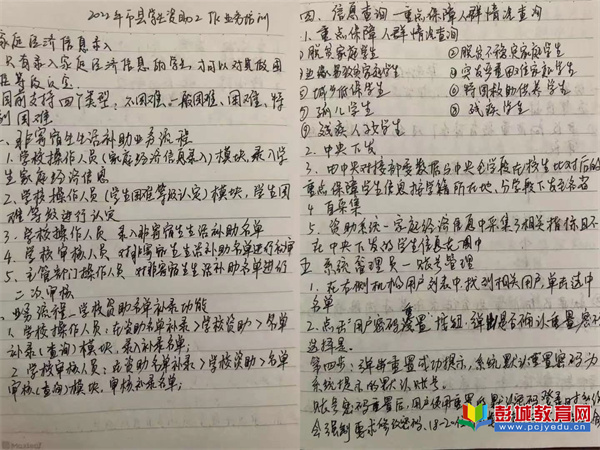 2022年市县学生资助工作业务培训
家庭经济信息录入
只有录入家庭经济信息的学生,才可以对其做困
难等级认定
目前支持四个类型:不困难、一般困难、困难、特
别困难
一、非寄宿生生活补助业务流程
1.学校操作人员(家庭经济信息录入)模块,录入学
生家庭经济信息
2.学校操作人员(学生困难等级认定)模块,学生困
难等级进行认定
3.学校操作人员 录入非寄宿生生活补助名单
4.学校审核人员 对非寄宿生生活补助名单进行初审
5.主管部门操作人员 对非寄宿生生活补助名单进行
二次审核
业务流程—学校资助名单补录功能
1.学校操作人员:在资助名单补录>学校资助>名单
补录(查询)模块,录入补录名单;
2.学校审核人员:在资助名单补录>学校资助>名单
审核(查询)模块,审核补录名单;
四、信息查询—重点保障人群情况查询
1.重点保障人群情况查询
①脱贫家庭学生 ②脱贫不稳定家庭学生
③边缘易致贫家庭学生 ④突发严重困难家庭学生
⑤城乡低保学生 ⑥特困救助供养学生
⑦孤儿学生 ⑧残疾学生
⑨残疾人子女学生
2.中央下发
3.由中央对接部委数据与中央的学校在校生比对后的
重点保障学生信息按学籍所在地、与学校下发至各省
4.自采集
5.资助系统—家庭经济信息中采集了相关指标且不
在中央下发的学生信息范围中
五 系统管理员—账号管理
1.在左侧机构的用户列表中,找到相关用户,单击选中
名单
2.点击"用户密码重置"按钮,弹出是否确认重置密码
选择是。
第四步:弹出重置成功提示,系统默认重置密码为
系统提示的默认账号。
账号密码重置后,用户使用重置的默认密码登录时
会强制要求修改密码,18-20
彭城教育网
www.pcjyedu.cn